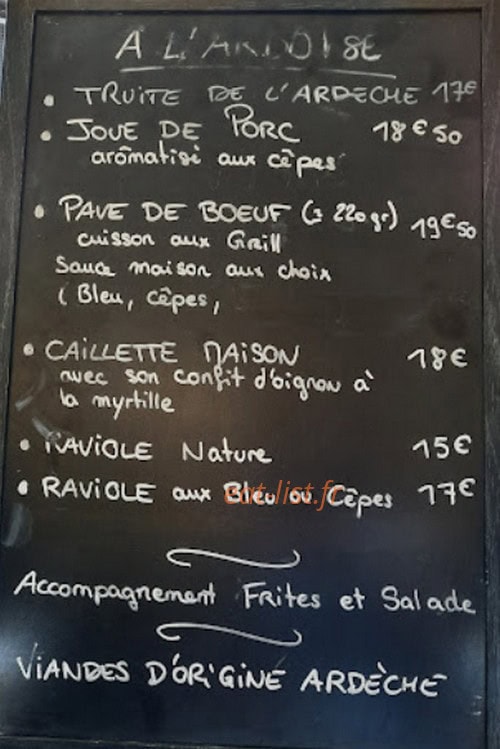 A L'ARDOISE
• TRUITE DE L'ARDECHE 17€
• JOUE DE PORC 18€50
arômatisé aux cêpes
• PAVE DE BOEUF (± 220gr) 19€50
cuisson aux Grill
Sauce maison aux choix
( Bleu, cêpes,
• CAILLETTE MAISON 18€
avec son confit d'oignon à
la myrtille
• RAVIOLE Nature 15€
• RAVIOLE aux Bleu ou Cêpes 17€
eat-list.fr
Accompagnement Frites et Salade
VIANDES D'ORIGINE ARDÈCHE